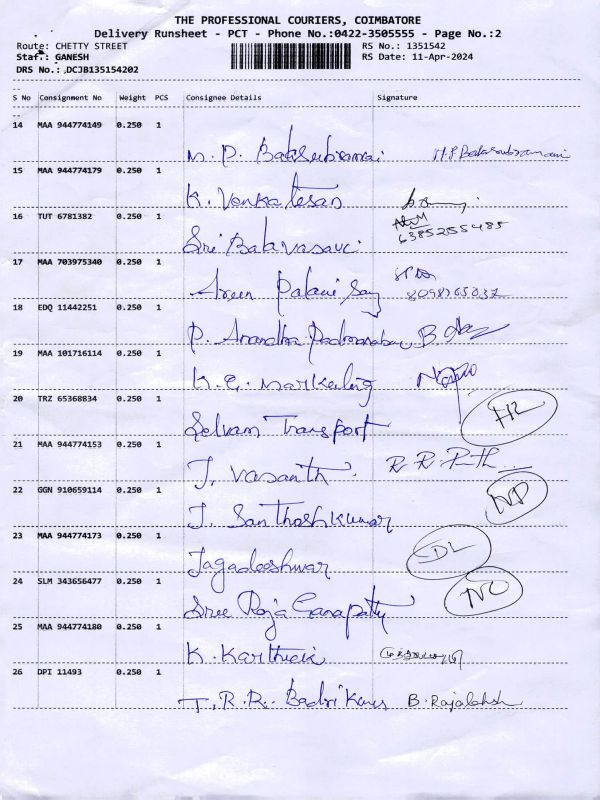 THE PROFESSIONAL COURIERS, COIMBATORE
Delivery Runsheet - PCT - Phone No.:0422-3505555 - Page No.:2
Route: CHETTY STREET RS No.: 1351542
Staf.: GANESH RS Date: 11-Apr-2024
DRS No.: DCJB135154202
S No Consignment No Weight PCS Consignee Details Signature
14 MAA 944774149 0.250 1
M. P. Balasubramani M.P Balasubramani
15 MAA 944774179 0.250 1
K. Venkatesan
16 TUT 6781382 0.250 1
Sri Balavasavi 6385255485
17 MAA 703975340 0.250 1
Palani Samy
18 EDQ 11442251 0.250 1
P. Anandha Padmanaban B
19 MAA 101716114 0.250 1
K. G. Marketing
20 TRZ 65368834 0.250 1
Selvam Transport
21 MAA 944774153 0.250 1
J. Vasanth R. R.
22 GGN 910659114 0.250 1
J. Santhosh Kumar
23 MAA 944774173 0.250 1
Jagadeeshwar
24 SLM 343656477 0.250 1
Sree Raja Ganapathy
25 MAA 944774180 0.250 1
K. Karthick
26 DPI 11493 0.250 1
T. R. R. Badri B. Rajalakshmi